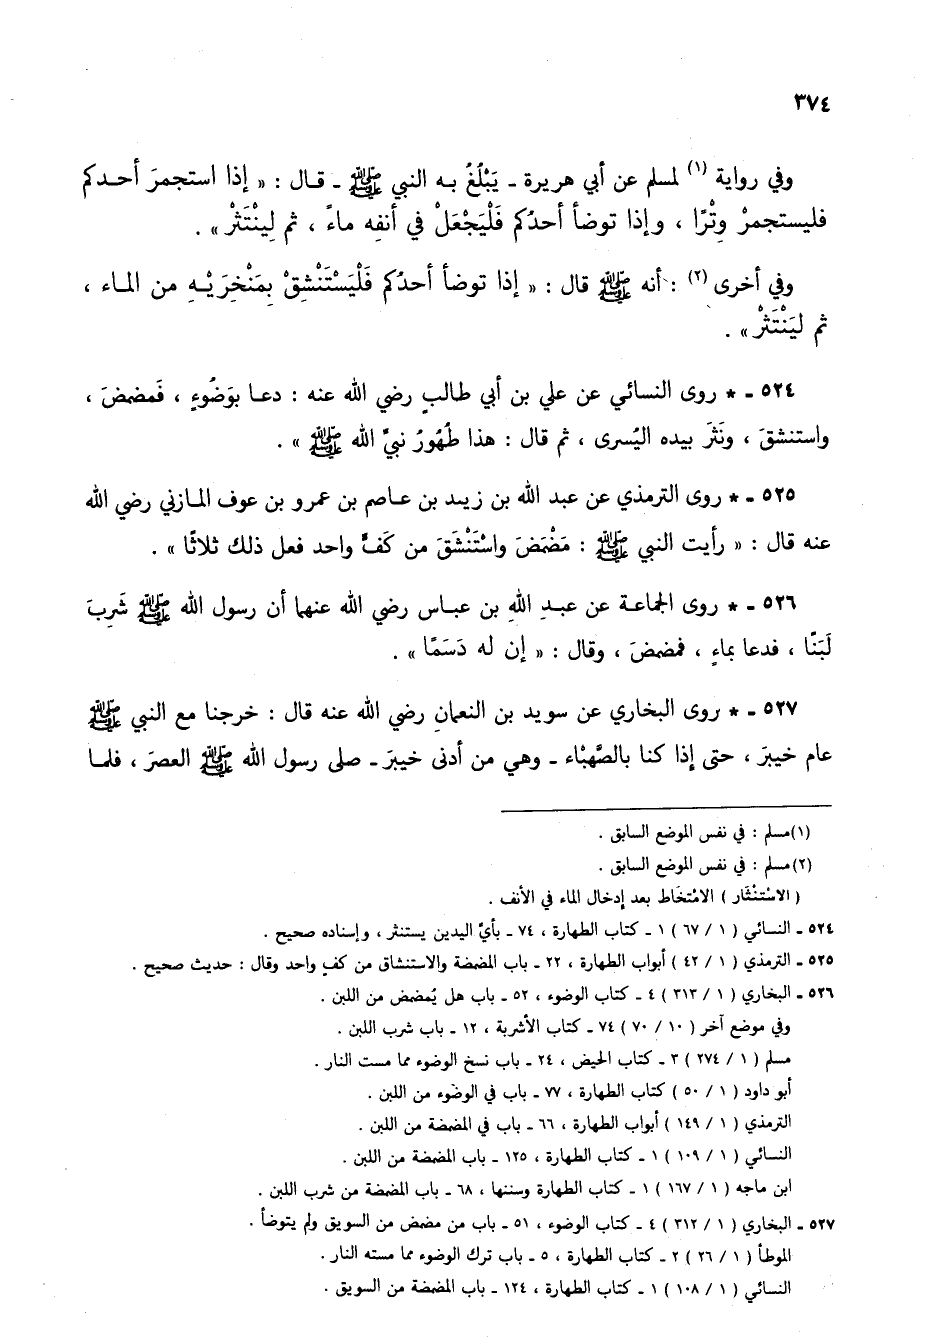 ٣٧٤
وفي رواية (١) لمسلم عن أبي هريرة ـ يَبْلُغُ به النبي ﷺ ـ قال : « إذا استجمرَ أحدكم
فليستجمرْ وِتْرًا ، وإذا توضأ أحدُكم فَلْيَجْعَلْ في أنفِه ماءً ، ثم لِيَنْتَثرْ » .
وفي أخرى (٢) : أنه ﷺ قال : « إذا توضأ أحدُكم فَلْيَسْتَنْشِقْ بِمَنْخِرَيْهِ من الماء ،
ثم ليَنْتَثرْ » .
٥٢٤ ـ * روى النسائي عن علي بن أبي طالبٍ رضي الله عنه : دعا بوَضُوءٍ ، فَمضمضَ ،
واستنشقَ ، ونَثَرَ بيده اليُسرى ، ثم قال : هذا طُهُورُ نبيِّ الله ﷺ » .
٥٢٥ ـ * روى الترمذي عن عبد الله بن زيد بن عاصم بن عمرو بن عوف المازني رضي الله
عنه قال : « رأيت النبي ﷺ : مَضْمَضَ واسْتَنْشَقَ من كَفٍّ واحد فعل ذلك ثلاثًا » .
٥٢٦ ـ * روى الجماعة عن عبد اللهِ بن عباس رضي الله عنهما أن رسول الله ﷺ شَرِبَ
لَبَنًا ، فدعا بماءٍ ، فمضمضَ ، وقال : « إن له دَسَمًا » .
٥٢٧ ـ * روى البخاري عن سويد بن النعمانِ رضي الله عنه قال : خرجنا مع النبي ﷺ
عام خيبرَ ، حتى إذا كنا بالصَّهْبْاء ـ وهي من أدنى خيبرَ ـ صلى رسول الله ﷺ العصرَ ، فلما
(١) مسلم : في نفس الموضع السابق .
(٢) مسلم : في نفس الموضع السابق .
( الاسْتِنْثَار ) الامْتخَاط بعد إدخال الماء في الأنف .
٥٢٤ ـ النسائي ( ١ / ٦٧ ) ١ ـ كتاب الطهارة ، ٧٤ ـ بأيِّ اليدين يستنثر ، وإسناده صحيح .
٥٢٥ ـ الترمذي ( ١ / ٤٢ ) أبواب الطهارة ، ٢٢ ـ باب المضمضة والاستنشاق من كف واحد وقال : حديث صحيح .
٥٢٦ ـ البخاري ( ١ / ٣١٣ ) ٤ ـ كتاب الوضوء ، ٥٢ ـ باب هل يُمضمض من اللبن .
وفي موضع آخر ( ١٠ / ٧٠ ) ٧٤ ـ كتاب الأشربة ، ١٢ ـ باب شرب اللبن .
مسلم ( ١ / ٢٧٤ ) ٣ ـ كتاب الحيض ، ٢٤ ـ باب نسخ الوضوء مما مست النار .
أبو داود ( ١ / ٥٠ ) كتاب الطهارة ، ٧٧ ـ باب في الوضوء من اللبن .
الترمذي ( ١ / ١٤٩ ) أبواب الطهارة ، ٦٦ ـ باب في المضمضة من اللبن .
النسائي ( ١ / ١٠٩ ) ١ ـ كتاب الطهارة ، ١٢٥ ـ باب المضمضة من اللبن .
ابن ماجه ( ١ / ١٦٧ ) ١ ـ كتاب الطهارة وسننها ، ٦٨ ـ باب المضمضة من شرب اللبن .
٥٢٧ ـ البخاري ( ١ / ٣١٢ ) ٤ ـ كتاب الوضوء ، ٥١ ـ باب من مضمض من السويق ولم يتوضأ .
الموطأ ( ١ / ٢٦ ) ٢ ـ كتاب الطهارة ، ٥ ـ باب ترك الوضوء مما مسته النار .
النسائي ( ١ / ١٠٨ ) ١ ـ كتاب الطهارة ، ١٢٤ ـ باب المضمضة من السويق .